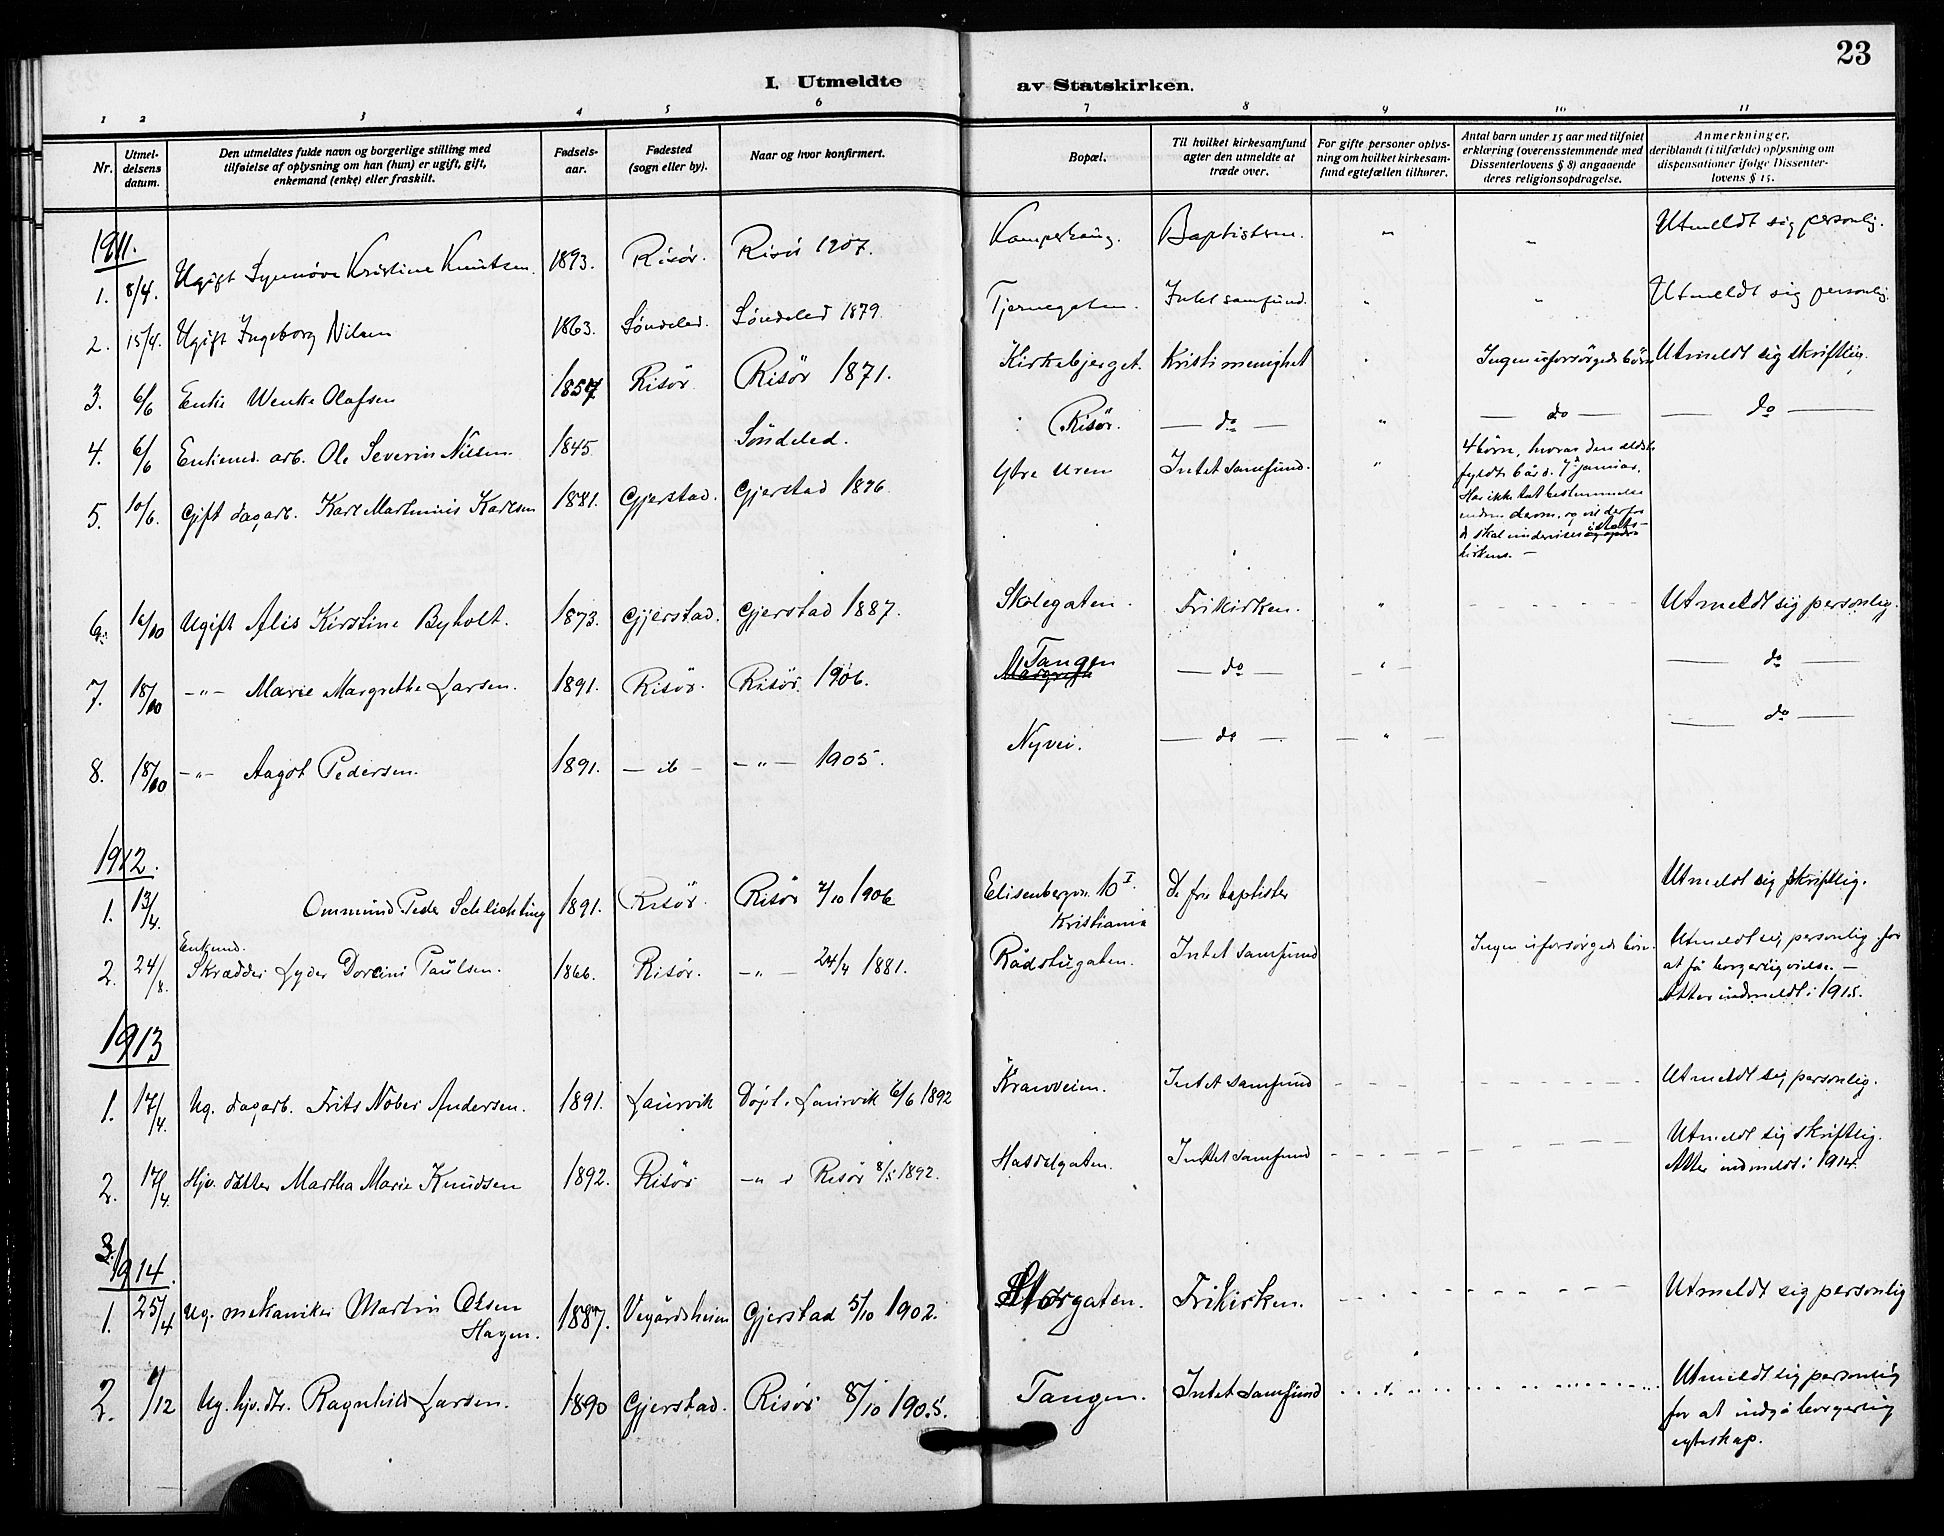 23
I. Utmeldte av Statskirken.
1 2 3 4 5 6 7 8 9 10 11
Nr.
Utmel-
delsens
datum.
Den utmeldtes fulde navn og borgerlige stilling med
tilføielse af oplysning om han (hun) er ugift, gift,
enkemand (enke) eller fraskilt.
Fødsels-
aar.
Fødested
(sogn eller by).
Naar og hvor konfirmert.
Bopæl.
Til hvilket kirkesamfund
agter den utmeldte at
træde over.
For gifte personer oplys-
ning om hvilket kirkesam-
fund egtefællen tilhører.
Antal barn under 15 aar med tilføiet
erklæring (overensstemmende med
Dissenterlovens § 8) angaaende
deres religionsopdragelse.
Anmerkninger,
deriblandt (i tilfælde) oplysning om
dispensationer ifølge Dissenter-
lovens § 15.
1911.
1. 8/4. Ugift Synnøve Kristine Knutsen. 1893. Risör. Risör 1907. Kamperhaug. Baptistern. " " Utmeldt sig personlig.
2. 15/4. Ugift Ingeborg Nilsen 1863. Søndeled. Søndeled 1879 Tjernegaten. Intet samfund. " " Utmeldt sig personlig.
3. 6/6 Enke Wenke Olafsen 1857 Risör Risör 1871. Kirkebjerget. Kristi menighet " Ingen uforsørgede börn Utmeldt sig skriftlig.
4. 6/6 Enkemd. arb. Ole Severin Nilsen 1845 Söndeled. Risör. — do — " — do — — do —
5. 10/6. Gift dagarb. Karl Martinius Karlsen 1881. Gjerstad. Gjerstad 1896 Ytre Uren Intet samfund. " 4 börn, hvorav den eldste
fyldte 6 år d. 7 januar.
Har ikke tat bestemmelse
derom, og vil derfor
skal undervises i stats-
kirkens. —
6. 16/10 Ugift Alis Kirstine Byholt. 1873. Gjerstad. Gjerstad 1887. Skolegaten. Frikirken. " Utmeldt sig personlig.
7. 18/10 —"— Marie Margrethe Larsen. 1891. Risör. Risör. 1906. Tangen — do — " — — do —
8. 18/10 —"— Aagot Pedersen. 1891. — ib — —"— 1905. Nyvei. — do — — " — — do —
1912.
1. 13/4. Ommund Peder Schlichting 1891. Risör. Risör 7/10 1906 Elisenbergvn. 10 I.
Kristiania De frie baptister — Utmeldt sig skriftlig.
2. 24/8. Enkemd.
Skrædder Lyder Doreius Paulsen. 1866. Risör. —"— 24/4 1881. Rådstugaten. Intet samfund Ingen uforsørgede börn. Utmeldt sig personlig for
at få borgerlig vielse. —
Atter indmeldt i 1915.
1913
1. 17/4. Ug. dagarb. Frits Nober Andersen. 1891. Laurvik Döpt i Laurvik 6/6 1892 Kranveien. Intet samfund Utmeldt sig personlig.
2. 17/4 Hjv. datter Martha Marie Knudsen 1892. Risör —" i Risör 8/5 1892. Hasdalgaten. Intet samfund Utmeldt sig skriftlig.
Atter indmeldt i 1914.
3.
1914.
1. 25/4 Ug. mekaniker Martin Olsen
Hagen. 1887. Vegårdsheim Gjerstad 5/10 1902. Storgaten. Frikirken. Utmeldt sig personlig
2. 1/12 Ug. hjv. dtr. Ragnhild Larsen. 1890 Gjerstad. Risör 8/10 1905. Tangen. Intet samfund Utmeldt sig personlig
for at indgå borgerlig
egteskap.